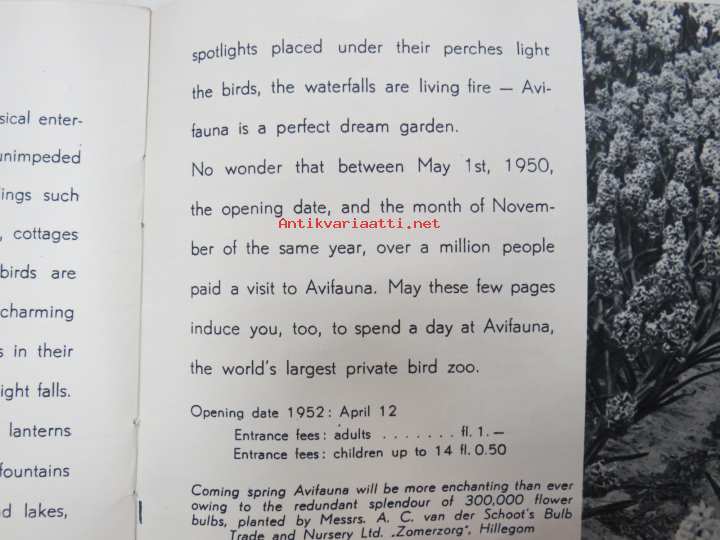 sical enter-
unimpeded
ings such
, cottages
birds are
charming
s in their
ight falls.
lanterns
fountains
d lakes,
spotlights placed under their perches light
the birds, the waterfalls are living fire — Avi-
fauna is a perfect dream garden.
No wonder that between May 1st, 1950,
the opening date, and the month of Novem-
Antikvariaatti.net
ber of the same year, over a million people
paid a visit to Avifauna. May these few pages
induce you, too, to spend a day at Avifauna,
the world's largest private bird zoo.
Opening date 1952: April 12
Entrance fees: adults . . . . . . . fl. 1.—
Entrance fees: children up to 14 fl. 0.50
Coming spring Avifauna will be more enchanting than ever
owing to the redundant splendour of 300,000 flower
bulbs, planted by Messrs. A. C. van der Schoot's Bulb
Trade and Nursery Ltd. „Zomerzorg", Hillegom